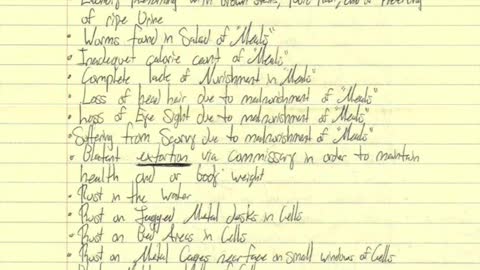 of ripe Urine
• Worms found in Salad of "Meals"
• Inadequet calorie count of "Meals"
• Complete lack of Nurishment in "Meals"
• Loss of head hair due to malnurishment of "Meals"
• Loss of Eye Sight due to malnurishment of "Meals"
• Suffering from Scurvy due to malnurishment of "Meals"
• Blatent extortion via Commissary in order to maintain
health and or body weight
• Rust in the Water
• Rust on Jagged Metal desks in Cells
• Rust on Bed Areas in Cells
• Rust on Metal Cages near face on small windows of Cells